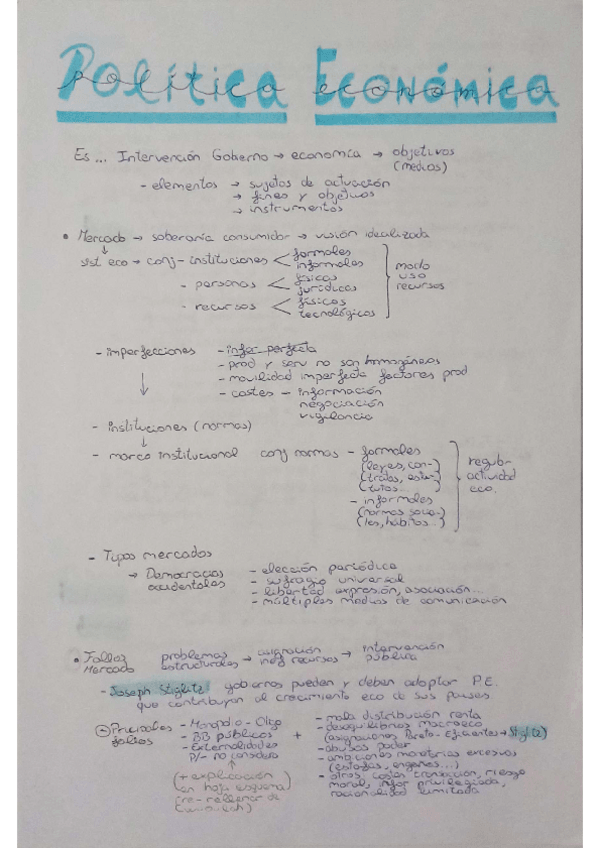 Política Económica
política económica
Es... Intervención Gobierno → economía → objetivos
(medios)
- elementos → sujetos de actuación
→ fines y objetivos
→ instrumentos
• Mercado → soberanía consumidor → visión idealizada
↓
sist eco → conj - instituciones < formales
informales
- personas < físicas
jurídicas
- recursos < físicos
tecnológicos
modo
uso
recursos
- imperfecciones - infor perfecta
- prod y serv no son homogéneos
- movilidad imperfecta factores prod
- costes - información
negociación
vigilancia
↓
- instituciones (normas)
↓
- marco institucional conj normas - formales
(leyes, con-)
(tratos, esta-)
(tutos...)
- informales
(normas socia-)
(les, hábitos..)
regula-
actividad
eco.
- Tipos mercados
→ Democracias
occidentales
- elección periódica
- sufragio universal
- libertad expresión, asociación...
- múltiples medios de comunicación
• Fallos
Mercado
problemas
estructurales → asignación
inef recursos → intervención
pública
- Joseph Stiglitz gobiernos pueden y deben adoptar P.E.
que contribuyan al crecimiento eco de sus países.
Principales
fallos
- Monopolio - Oligo
- BB públicos
- Externalidades
P/- no considera
↑
(+ explicación
en hoja esquema
+
- mala distribución renta
- desequilibrios macroeco
(asignaciones Pareto-Eficientes → Stiglitz)
- abusos poder
- ambiciones monetarias excesivas
(estafas, engaños...)
- otros, costes transacción, riesgo
moral, infor privilegiada,
racionalidad limitada